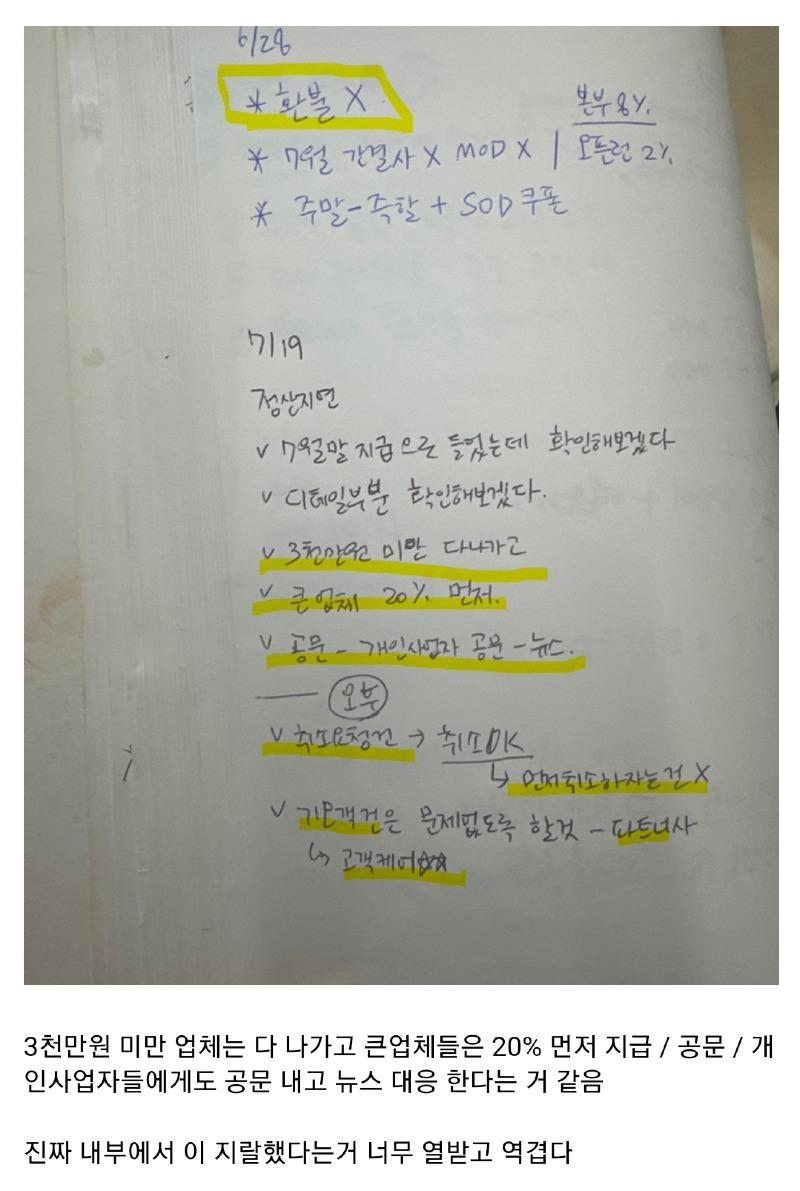 6/28
* 환불 X
본부 8%
* 7월 간결사 X MOD X | 오픈런 2%
* 주말-즉할 + SOD 쿠폰
7/19
정산지연
v 7월말 지급으로 들었는데 확인해보겠다
v 디테일부분 확인해보겠다.
v 3천만원 미만 다나가고
v 큰업체 20% 먼저.
v 공문 - 개인사업자 공문 - 뉴스.
오후
v 취소요청건 → 취소OK
↳ 먼저취소하자는건 X
v 기요객건은 문제없도록 할것 - 파트너사
↳ 고객케어☆☆
3천만원 미만 업체는 다 나가고 큰업체들은 20% 먼저 지급 / 공문 / 개
인사업자들에게도 공문 내고 뉴스 대응 한다는 거 같음
진짜 내부에서 이 지랄했다는거 너무 열받고 역겹다